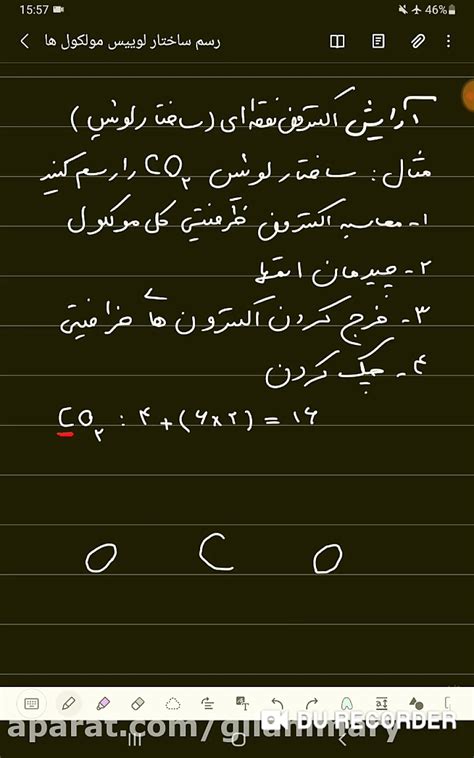 15:57
46%
رسم ساختار لوییس مولکول ها
آرایش الکترون نقطه ای (ساختار لوئیس)
مثال: ساختار لوئیس CO₂ را رسم کنید
۱- محاسبه الکترون ظرفیتی کل مولکول
۲- چیدمان اتمها
۳- خرج کردن الکترون های ظرافیتی
۴- چک کردن
CO₂ : ۴+(۶×۲) = ۱۶
O C O
DU RECORDER